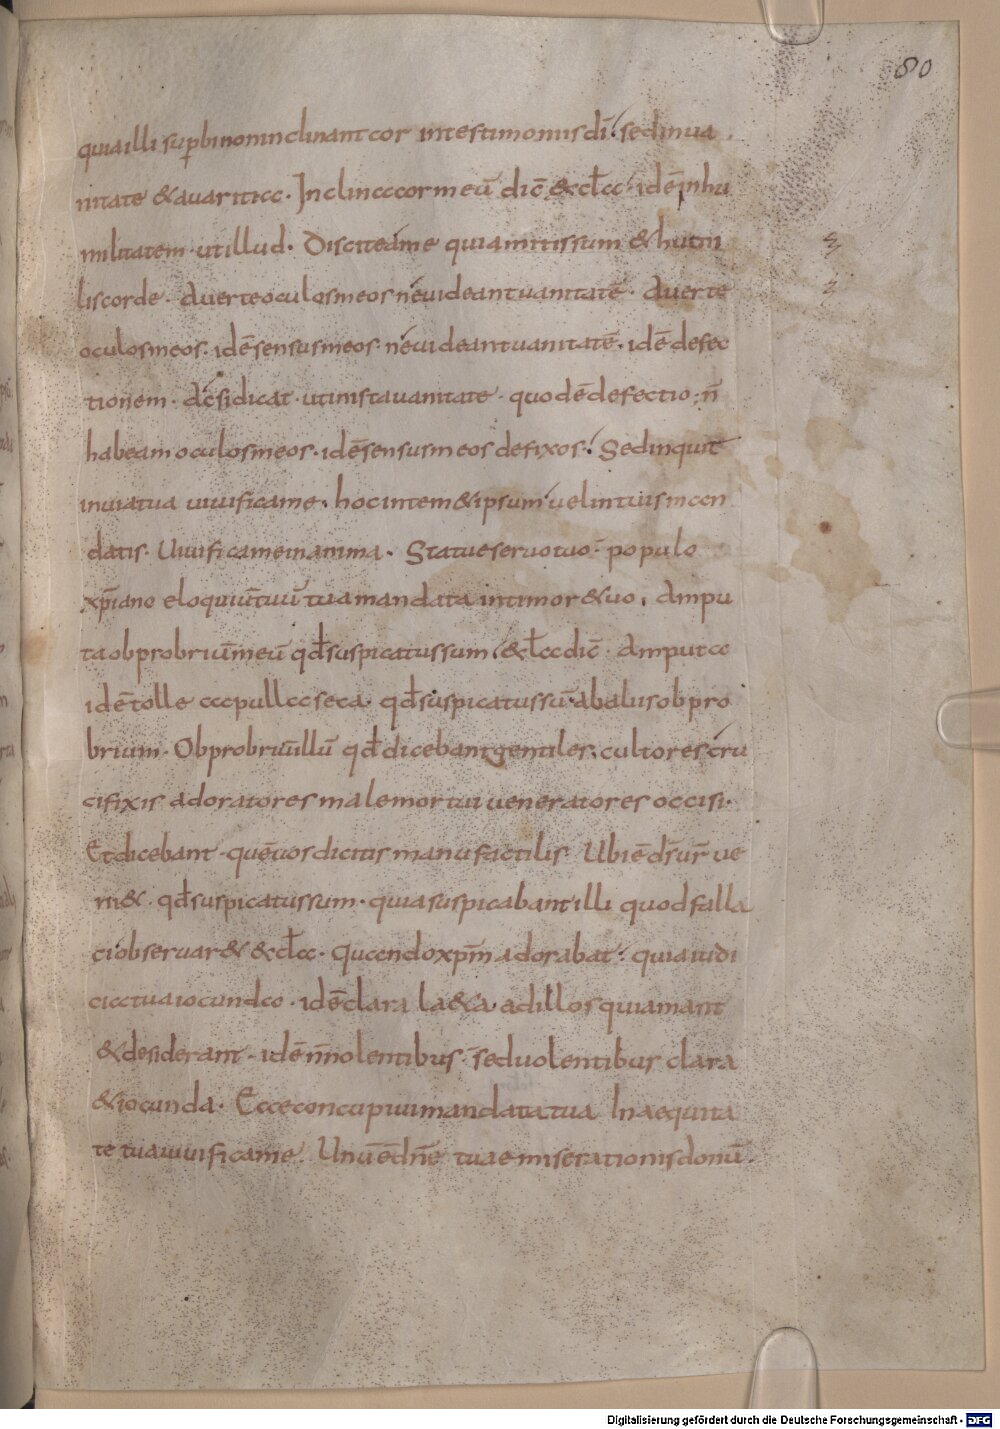 80
quia illi supbi non inclinant cor in testimoniis dī. sed in ua
nitate & auaritia. Inclina cor meū dic̄ &cła. idē in hu
militatem. ut illud. Discite a me quia mitis sum & humi
lis corde. Auerte oculos meos ne uideant uanitatē. Auerte
oculos meos. idē sensus meos. ne uideant uanitatē. idē defec
tionem. ac si dicat. ut in ista uanitate. quod ē defectio; n̄
habeam oculos meos. idē sensus meos defixos. Sed inquit
in uia tua uiuifica me. hoc in tem&ipsum uel in tuis man
datis. Uiuifica me in anima. Statue seruo tuo. populo
xp̄iano eloquiū tuū tua mandata in timor& uo. Ampu
ta obprobriū meū qđ suspicatus sum. &cła dic̄. Amputa
idē tolle a a pulla seca. qđ suspicatus sū. ab aliis obpro
brium. Obprobriū illū qđ dicebant gentiles. cultores cru
cifixi adoratores male mortui ueneratores occisi.
Et dicebant. quē uos dicitis manufactilis. Ubi ē d̄s ur̄ ue
ni&. qđ suspicatus sum. quia suspicabant illi quod falla
ci obseruar& &cła. Quando xpm̄ adorabat. quia iudi
cia tua iocunda. idē clara la&a. ad illos qui amant
& desiderant. idē n̄ nolentibus. sed uolentibus clara
& iocunda. Ecce concupiui mandata tua In aequita
te tua uiuifica me. Unū ē dn̄e tuae miserationis donū.
Digitalisierung gefördert durch die Deutsche Forschungsgemeinschaft - DFG